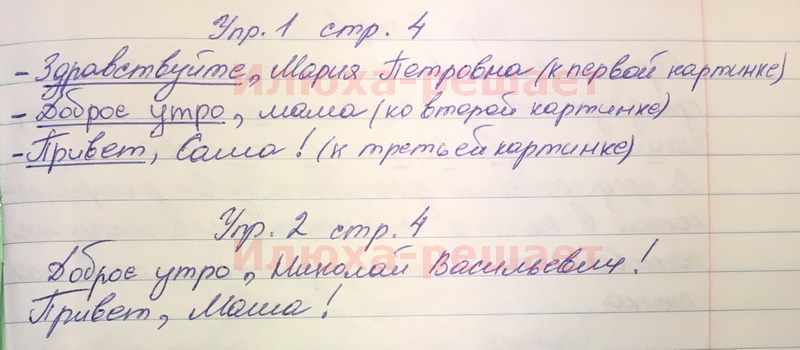 Упр. 1 стр. 4
- Здравствуйте, Мария Петровна (к первой картинке)
Илюха-решает
- Доброе утро, мама (ко второй картинке)
- Привет, Саша! (к третьей картинке)
Упр. 2 стр. 4
Илюха-решает
Доброе утро, Николай Васильевич!
Привет, Маша!